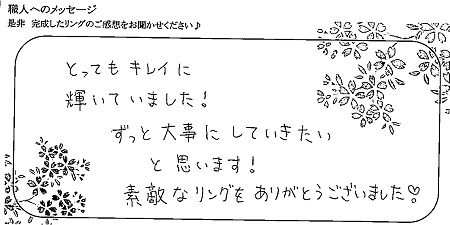 職人へのメッセージ
是非 完成したリングのご感想をお聞かせください♪
とってもキレイに
輝いていました!
ずっと大事にしていきたい
と思います!
素敵なリングをありがとうございました♡